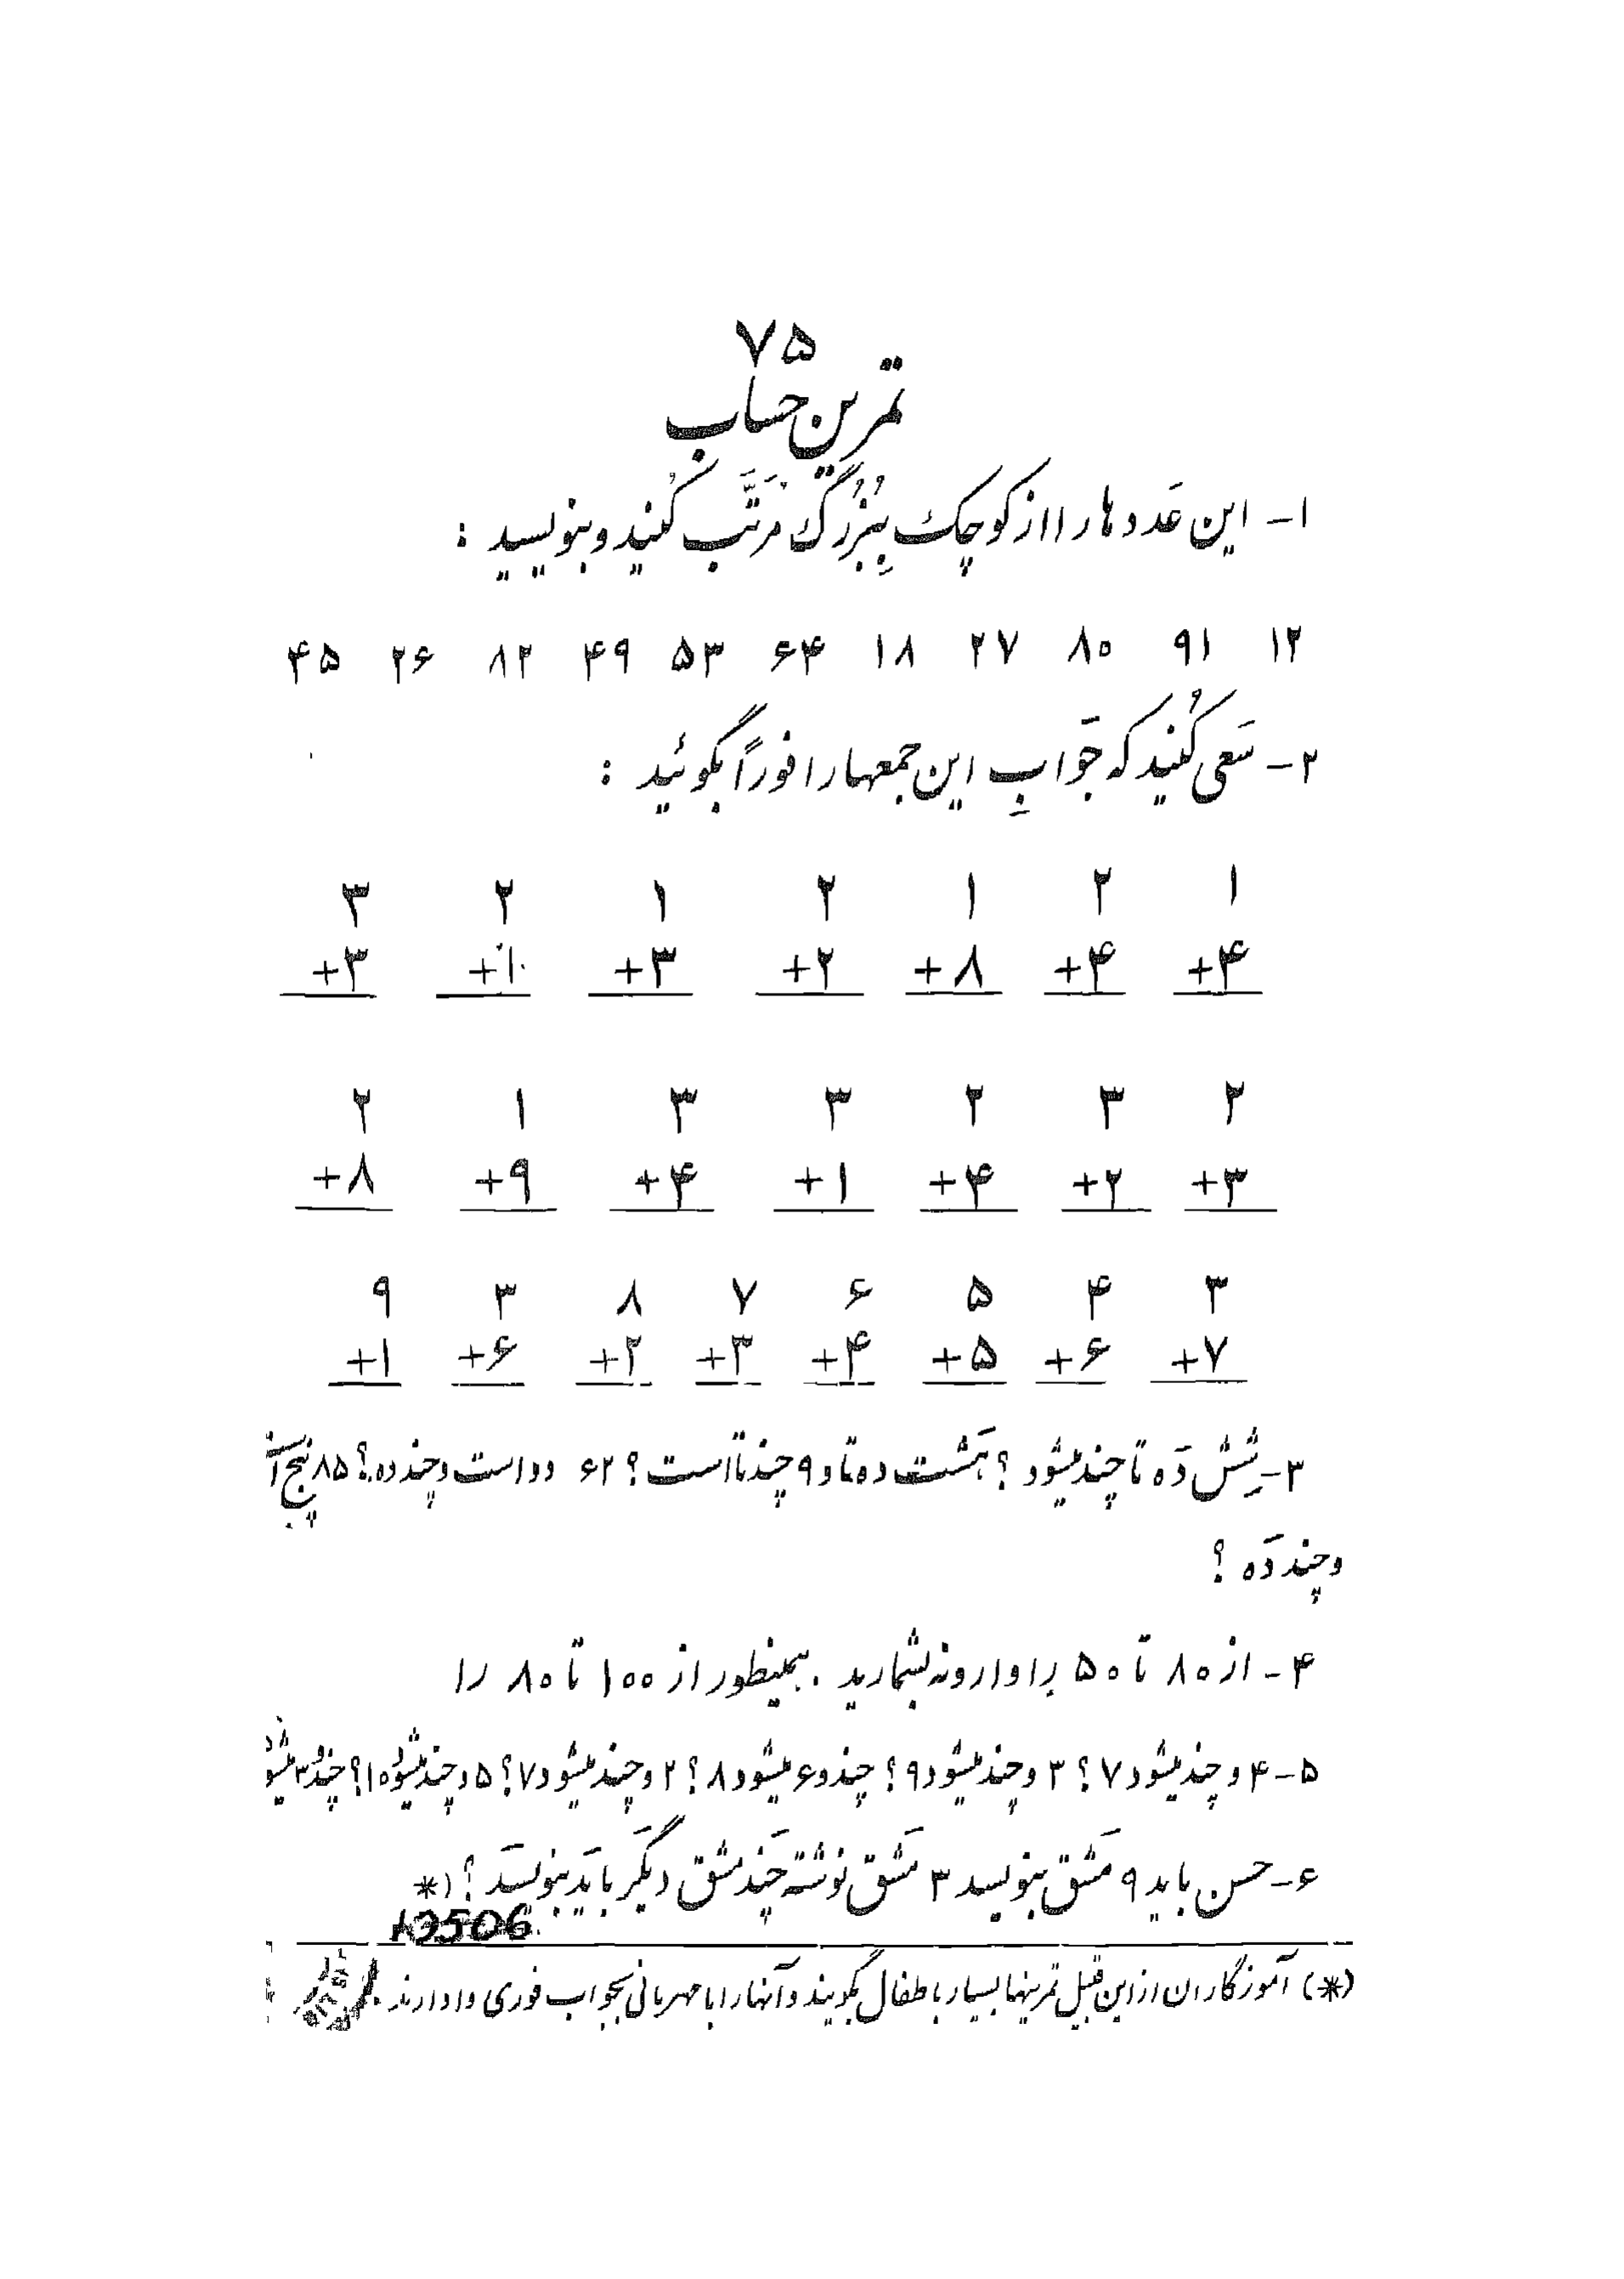 ۷۵
تمرین حساب
۱- این عَدد ها را از کوچک بِبُزُرگ مَرَتَّب کُنید و بنویسید :
۱۲ ۹۱ ۸۰ ۲۷ ۱۸ ۶۴ ۵۳ ۴۹ ۸۲ ۲۶ ۴۵
۲- سَعی کُنید که جَوابِ این جمعها را فوراً بگوئید :
۱ ۲ ۱ ۲ ۱ ۲ ۳
+۴ +۴ +۸ +۲ +۳ +۱۰ +۳
۲ ۳ ۲ ۳ ۳ ۱ ۲
+۳ +۲ +۴ +۱ +۴ +۹ +۸
۳ ۴ ۵ ۶ ۷ ۸ ۳ ۹
+۷ +۶ +۵ +۴ +۳ +۲ +۶ +۱
۳- شِش دَه تا چند میشود ؟ هَشت ده تا و ۹ چند تا است ؟ ۶۲ دو است و چند ده ؟ ۸۵ پنج
و چند دَه ؟
۴- از ۸۰ تا ۵۰ را وارونه بشمارید . همینطور از ۱۰۰ تا ۸۰ را
۵- ۴ و چند میشود ۷ ؟ ۳ و چند میشود ۹ ؟ چند و ۶ میشود ۸ ؟ ۲ و چند میشود ۷ ؟ ۵ و چند میشود ۱۰ ؟ چند و ۳
۶- حسن باید ۹ مَشق بنویسد ۳ مَشق نوشته چَند مشق دیگَر بایَد بنویسَد ؟ (*
(*) آموزگاران از این قبیل تمرینها بسیار باطفال بگویند و آنها را با مهربانی بجواب فوری وادارند .